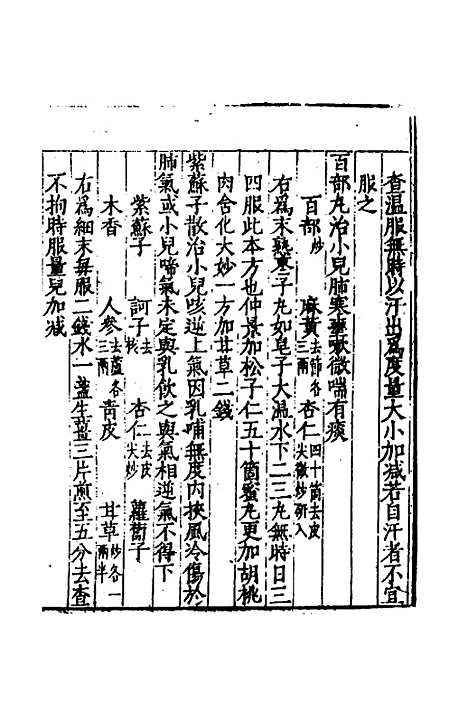 查温服無時以汗出爲度量大小加減若自汗者不宜
服之
百部丸治小兒肺寒壅嗽微喘有痰
百部炒 麻黄去節各三兩 杏仁四十箇去皮尖微炒研入
右爲末熟棗子丸如皂子大温水下二三丸無時日三
四服此本方也仲景加松子仁五十箇蜜丸更加胡桃
肉含化大妙一方加甘草二錢
紫蘇子散治小兒咳逆上氣因乳哺無度内挾風冷傷於
肺氣或小兒啼氣未定與乳飲之與氣相逆氣不得下
紫蘇子 訶子去核 杏仁去皮尖炒 蘿蔔子
木香 人參去蘆各三兩 青皮 甘草炒各一兩半
右爲細末每服二錢水一盞生薑三片煎至五分去查
不拘時服量兒加減